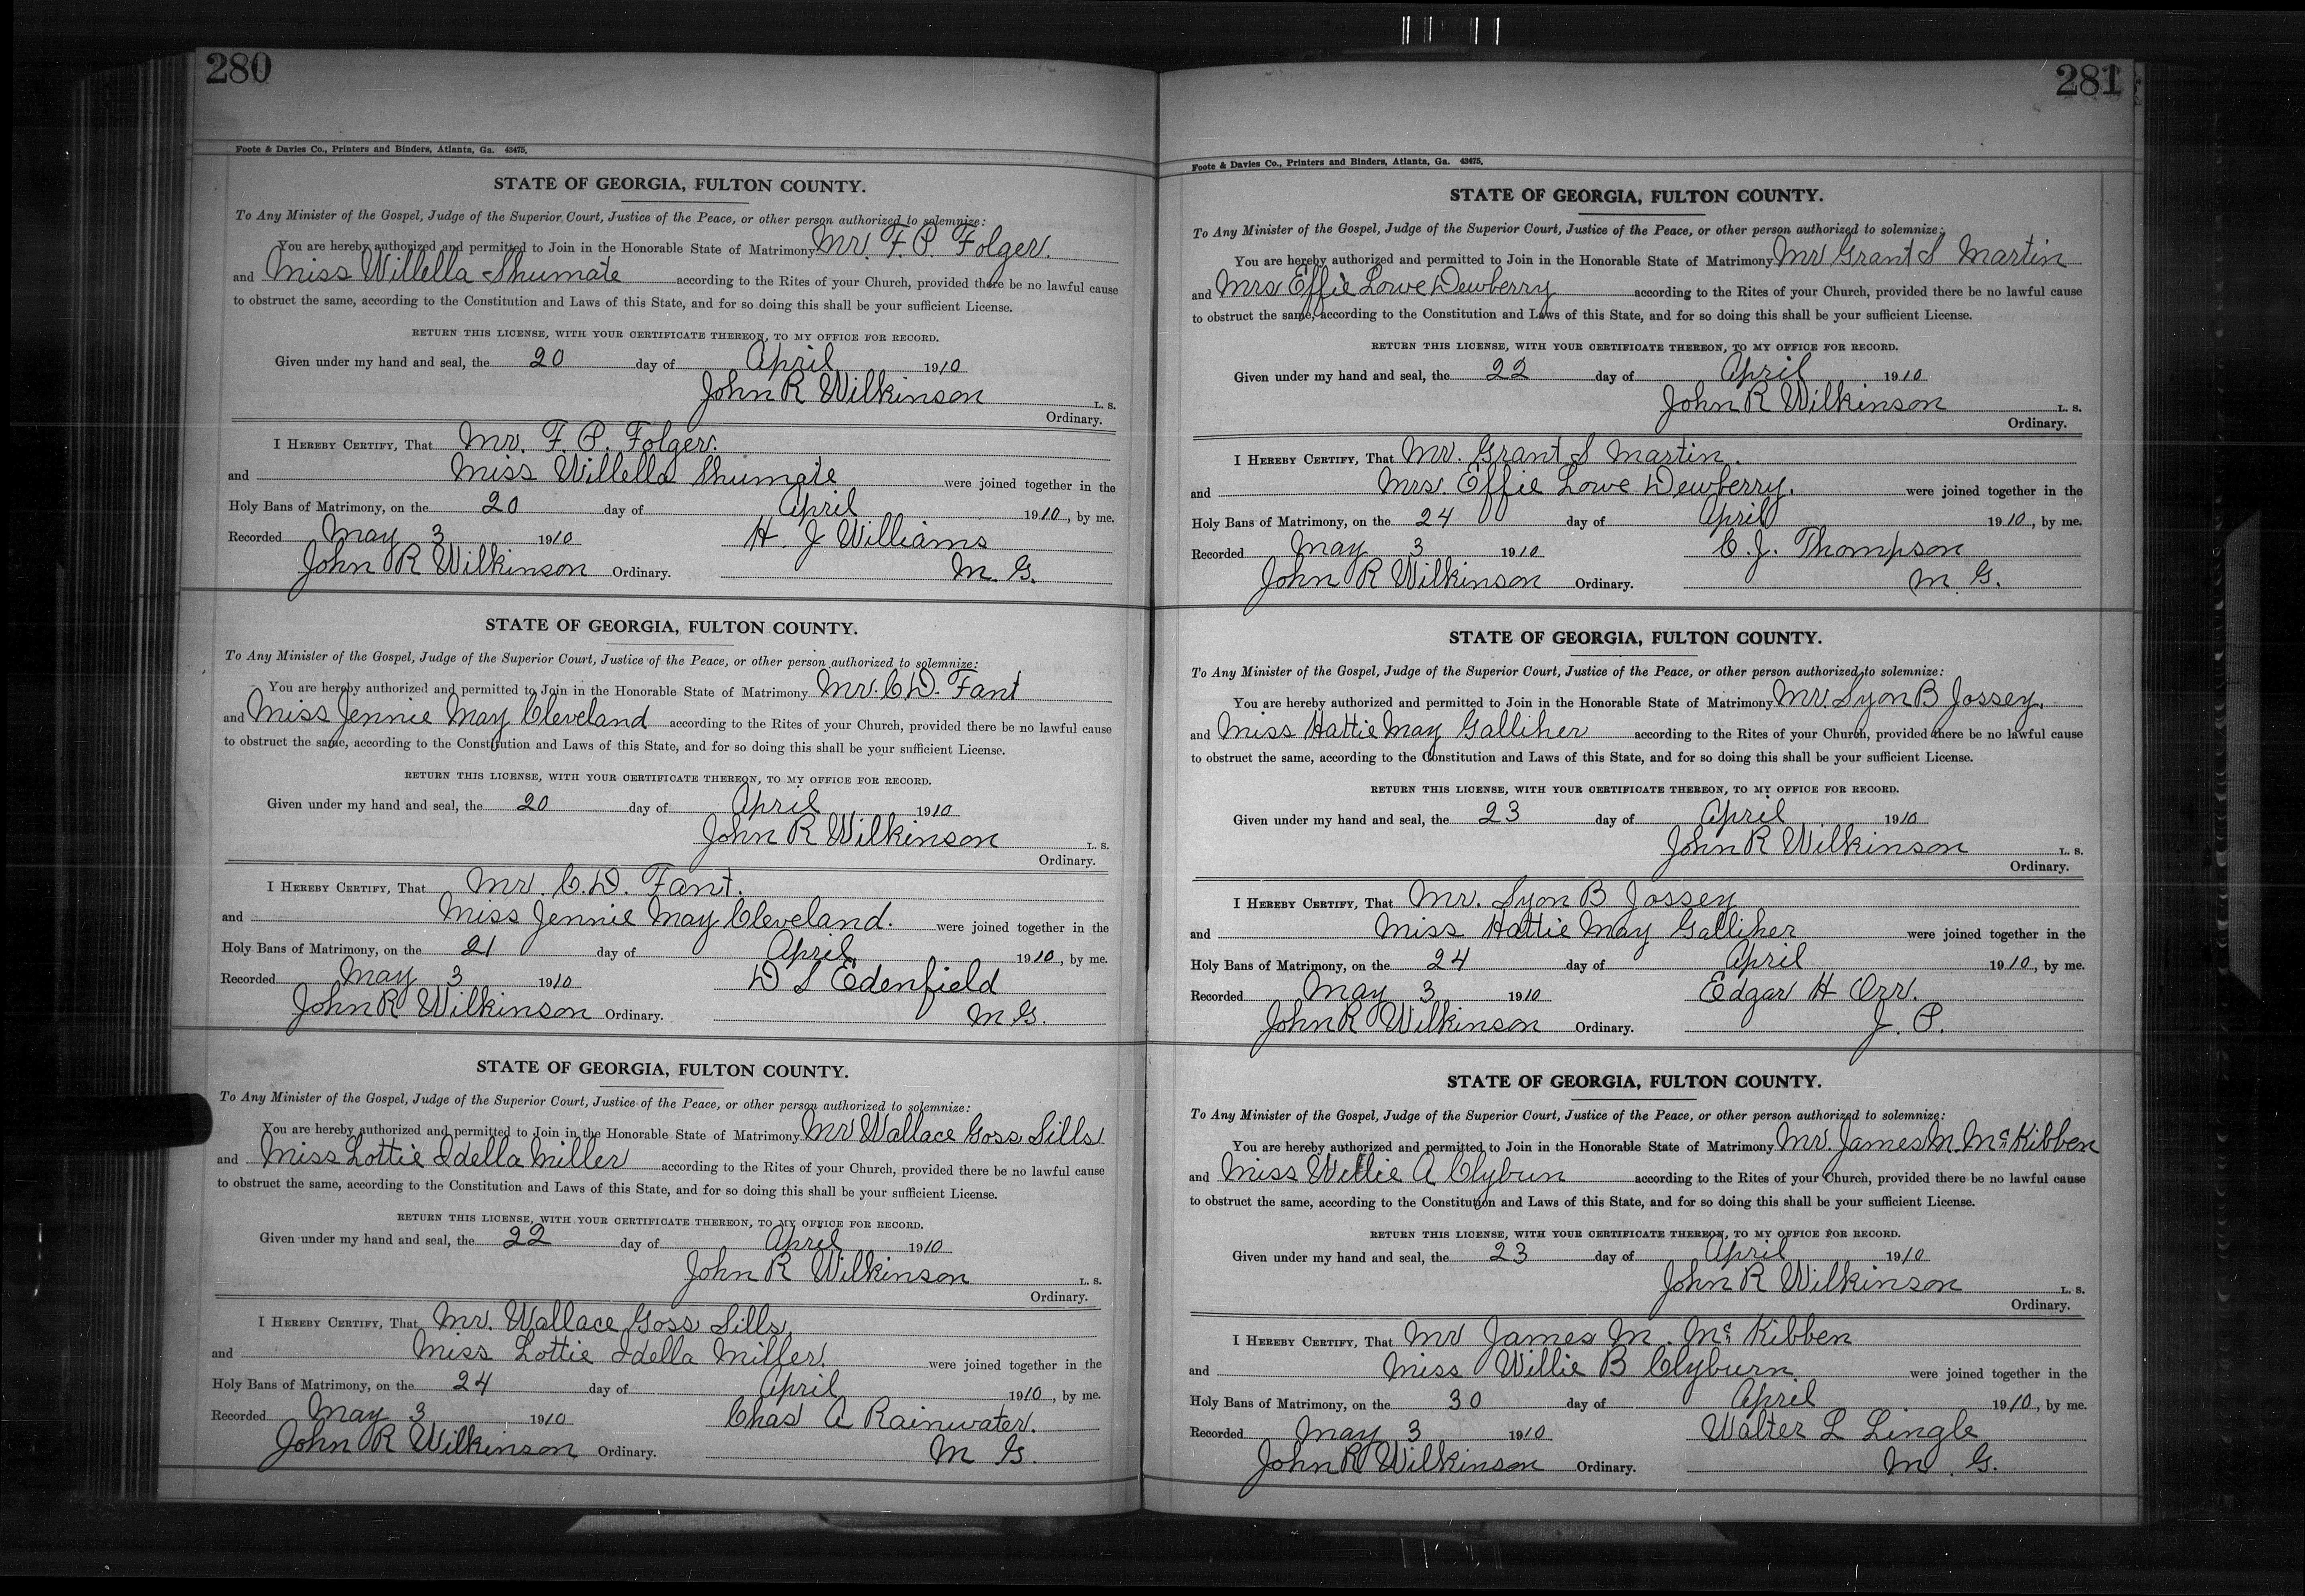 280
Foote & Davies Co., Printers and Binders, Atlanta, Ga. 43475.
STATE OF GEORGIA, FULTON COUNTY.
To Any Minister of the Gospel, Judge of the Superior Court, Justice of the Peace, or other person authorized to solemnize:
You are hereby authorized and permitted to Join in the Honorable State of Matrimony Mr. F. P. Folger.
and Miss Willella Shumate according to the Rites of your Church, provided there be no lawful cause
to obstruct the same, according to the Constitution and Laws of this State, and for so doing this shall be your sufficient License.
RETURN THIS LICENSE, WITH YOUR CERTIFICATE THEREON, TO MY OFFICE FOR RECORD.
Given under my hand and seal, the 20 day of April 1910
John R Wilkinson L. S.
Ordinary.
I HEREBY CERTIFY, That Mr. F. P. Folger.
and Miss Willella Shumate were joined together in the
Holy Bans of Matrimony, on the 20 day of April 1910, by me.
Recorded May 3 1910 H. J Williams
John R Wilkinson Ordinary. M. G.
STATE OF GEORGIA, FULTON COUNTY.
To Any Minister of the Gospel, Judge of the Superior Court, Justice of the Peace, or other person authorized to solemnize:
You are hereby authorized and permitted to Join in the Honorable State of Matrimony Mr. C. D. Fant
and Miss Jennie May Cleveland according to the Rites of your Church, provided there be no lawful cause
to obstruct the same, according to the Constitution and Laws of this State, and for so doing this shall be your sufficient License.
RETURN THIS LICENSE, WITH YOUR CERTIFICATE THEREON, TO MY OFFICE FOR RECORD.
Given under my hand and seal, the 20 day of April 1910
John R Wilkinson L. S.
Ordinary.
I HEREBY CERTIFY, That Mr. C. D. Fant.
and Miss Jennie May Cleveland. were joined together in the
Holy Bans of Matrimony, on the 21 day of April 1910, by me.
Recorded May 3 1910 D S Edenfield
John R Wilkinson Ordinary. M G.
STATE OF GEORGIA, FULTON COUNTY.
To Any Minister of the Gospel, Judge of the Superior Court, Justice of the Peace, or other person authorized to solemnize:
You are hereby authorized and permitted to Join in the Honorable State of Matrimony Mr Wallace Goss Sills
and Miss Lottie Idella Miller according to the Rites of your Church, provided there be no lawful cause
to obstruct the same, according to the Constitution and Laws of this State, and for so doing this shall be your sufficient License.
RETURN THIS LICENSE, WITH YOUR CERTIFICATE THEREON, TO MY OFFICE FOR RECORD.
Given under my hand and seal, the 22 day of April 1910
John R Wilkinson L. S.
Ordinary.
I HEREBY CERTIFY, That Mr. Wallace Goss Sills
and Miss Lottie Idella Miller. were joined together in the
Holy Bans of Matrimony, on the 24 day of April 1910, by me.
Recorded May 3 1910 Chas A Rainwater.
John R Wilkinson Ordinary. M G.
281
Foote & Davies Co., Printers and Binders, Atlanta, Ga. 43475.
STATE OF GEORGIA, FULTON COUNTY.
To Any Minister of the Gospel, Judge of the Superior Court, Justice of the Peace, or other person authorized to solemnize:
You are hereby authorized and permitted to Join in the Honorable State of Matrimony Mr Grant S Martin
and Mrs Effie Lowe Dewberry according to the Rites of your Church, provided there be no lawful cause
to obstruct the same, according to the Constitution and Laws of this State, and for so doing this shall be your sufficient License.
RETURN THIS LICENSE, WITH YOUR CERTIFICATE THEREON, TO MY OFFICE FOR RECORD.
Given under my hand and seal, the 22 day of April 1910
John R Wilkinson L. S.
Ordinary.
I HEREBY CERTIFY, That Mr. Grant S Martin.
and Mrs. Effie Lowe Dewberry. were joined together in the
Holy Bans of Matrimony, on the 24 day of April 1910, by me.
Recorded May 3 1910 C. J. Thompson
John R Wilkinson Ordinary. M. G.
STATE OF GEORGIA, FULTON COUNTY.
To Any Minister of the Gospel, Judge of the Superior Court, Justice of the Peace, or other person authorized to solemnize:
You are hereby authorized and permitted to Join in the Honorable State of Matrimony Mr. Lyon B Jossey.
and Miss Hattie May Galliher according to the Rites of your Church, provided there be no lawful cause
to obstruct the same, according to the Constitution and Laws of this State, and for so doing this shall be your sufficient License.
RETURN THIS LICENSE, WITH YOUR CERTIFICATE THEREON, TO MY OFFICE FOR RECORD.
Given under my hand and seal, the 23 day of April 1910
John R Wilkinson L. S.
Ordinary.
I HEREBY CERTIFY, That Mr. Lyon B Jossey
and Miss Hattie May Galliher were joined together in the
Holy Bans of Matrimony, on the 24 day of April 1910, by me.
Recorded May 3 1910 Edgar H Orr.
John R Wilkinson Ordinary. J. P.
STATE OF GEORGIA, FULTON COUNTY.
To Any Minister of the Gospel, Judge of the Superior Court, Justice of the Peace, or other person authorized to solemnize:
You are hereby authorized and permitted to Join in the Honorable State of Matrimony Mr. James M. McKibben
and Miss Willie A Clyburn according to the Rites of your Church, provided there be no lawful cause
to obstruct the same, according to the Constitution and Laws of this State, and for so doing this shall be your sufficient License.
RETURN THIS LICENSE, WITH YOUR CERTIFICATE THEREON, TO MY OFFICE FOR RECORD.
Given under my hand and seal, the 23 day of April 1910
John R Wilkinson L. S.
Ordinary.
I HEREBY CERTIFY, That Mr James M. McKibben
and Miss Willie B Clyburn were joined together in the
Holy Bans of Matrimony, on the 30 day of April 1910, by me.
Recorded May 3 1910 Walter L Lingle
John R Wilkinson Ordinary. M. G.